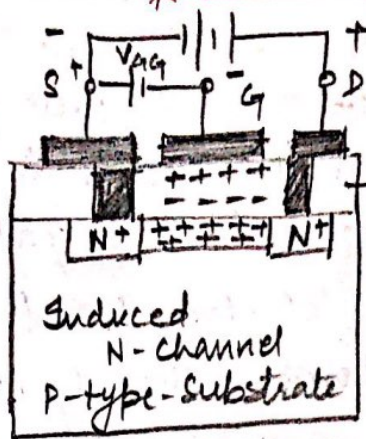 - +
S + VGG - G D
+ + + + +
- - - - -
N+ + + + + + N+
+ + + + +
Induced
N-Channel
P-type-Substrate